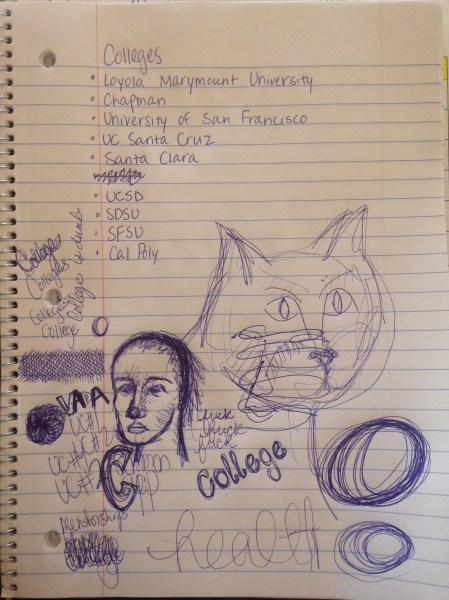 Colleges
• Loyola Marymount University
• Chapman
• University of San Francisco
• UC Santa Cruz
• Santa Clara
• UCSD
• SDSU
• SFSU
• Cal Poly
Colleges
Colleges
Colleges
College
College
UC#1
UC#UC#
UC#
fuck
fuck
fuck
College
Mentorships
health